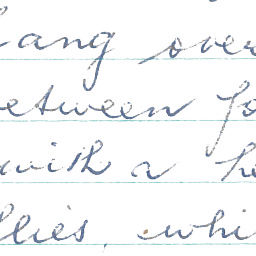 hang over
between fo
with a he
llies, whi